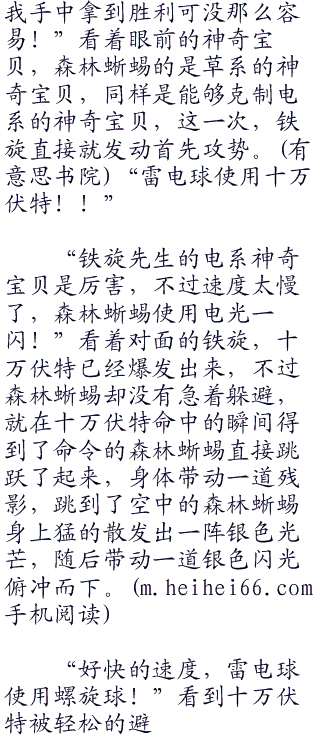 我手中拿到胜利可没那么容
易！”看着眼前的神奇宝
贝，森林蜥蜴的是草系的神
奇宝贝，同样是能够克制电
系的神奇宝贝，这一次，铁
旋直接就发动首先攻势。(有
意思书院)“雷电球使用十万
伏特！！”
“铁旋先生的电系神奇
宝贝是厉害，不过速度太慢
了，森林蜥蜴使用电光一
闪！”看着对面的铁旋，十
万伏特已经爆发出来，不过
森林蜥蜴却没有急着躲避，
就在十万伏特命中的瞬间得
到了命令的森林蜥蜴直接跳
跃了起来，身体带动一道残
影，跳到了空中的森林蜥蜴
身上猛的散发出一阵银色光
芒，随后带动一道银色闪光
俯冲而下。(m.heihei66.com
手机阅读)
“好快的速度，雷电球
使用螺旋球！”看到十万伏
特被轻松的避